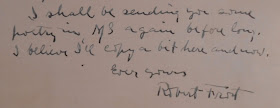 I shall be sending you some
poetry in MS again before long.
I believe I'll copy a bit here and now.
Ever yours
Robert Frost